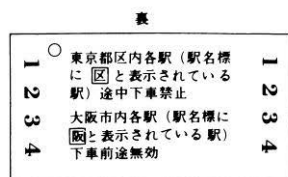 裏
東京都区内各駅（駅名標
に区と表示されている
駅）途中下車禁止
大阪市内各駅（駅名標に
阪と表示されている駅）
下車前途無効
1 2 3 4
1 2 3 4